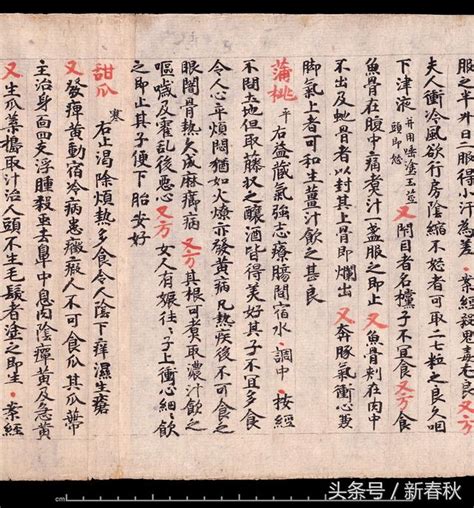 服之半升日三服得小汗為差・案經鬼毒毛良又方
夫人衝冷風欲行房陰縮不怒者可取二七粒之良久咽
下津液并用唾塗玉莖頭即怒又閇目者名子不宜食又方食
魚骨在腹中痛煮汁一盞服之即止又魚骨刺在肉中
不出及虵骨者以封其上骨即爛出又奔豚氣衝心
脚氣上者可和生薑汁飲之甚良
蒲桃平右益藏氣強志療腸間宿水・調中・按經
不問土地但取藤收之釀酒皆得美好其子不宜多食
令人心卒煩悶猶如火燎亦發黃病凡熱疾後不可食之
眼闇骨熱久成麻癤病又方其根可煮取濃汁飲之
嘔噦及霍亂後惡心又方女人有娠往〻子上衝心細〻飲
之即止其子便下胎安好
甜瓜寒右止渴除煩熱多食令人陰下痒濕生瘡
又發癉黃動宿冷病患癥瘕人不可食瓜其瓜蒂
主治身面四支浮腫殺蟲去鼻中息肉陰癉黃及急黃
又生瓜葉擣取汁治人頭不生毛髮者塗之即生・案經
cm
头条号 / 新春秋